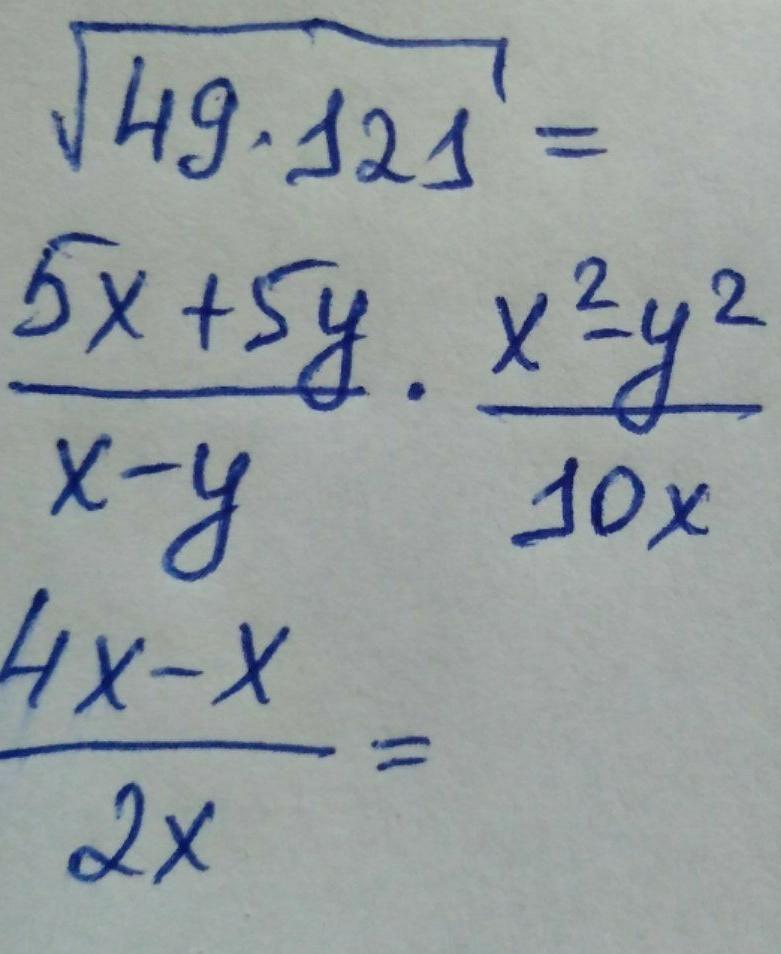 √49·121 =
5x+5y / x-y · x²-y² / 10x
4x-x / 2x =